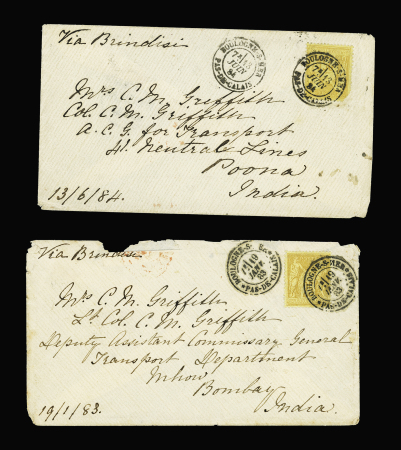 Via Brindisi
BOULOGNE-S-MER
7E/13
JUIN
84
PAS-DE-CALAIS
BOULOGNE-S-MER
7E/13
JUIN
84
PAS-DE-CALAIS
Mrs C. M. Griffith
Col. C. M. Griffith
A. C. G. for Transport
41. Neutral Lines
Poona
India.
13/6/84.
Via Brindisi
BOULOGNE-S-MER
19
83
PAS-DE-CALAIS
BOULOGNE-S-MER
19
83
PAS-DE-CALAIS
Mrs C. M. Griffith
Lt. Col. C. M. Griffith
Deputy Assistant Commissary General
Transport Department
Mhow
Bombay
India.
19/1/83.